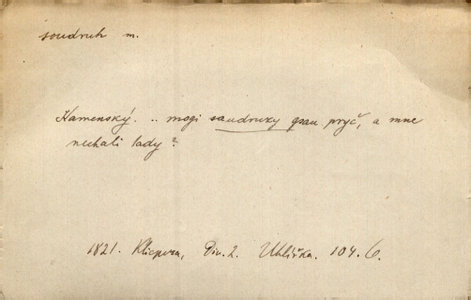 soudruh m.
Kamenský. .. mogi saudruzy gsau pryč, a mne
nechali lady?
1821. Klicpera, Div. 2. Uhlířka. 104. 6.